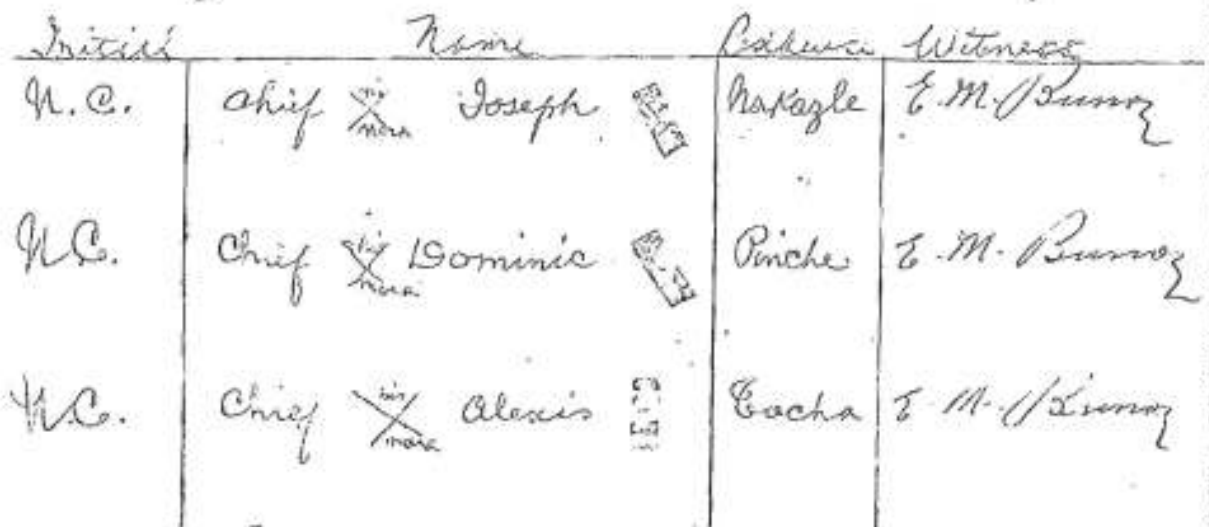 Initial Name Witness
N.C. Chief his mark Joseph Nakazle E. M. Bunoz
N.C. Chief his mark Dominic Pinche E. M. Bunoz
N.C. Chief his mark Alexis Tacha E. M. Bunoz